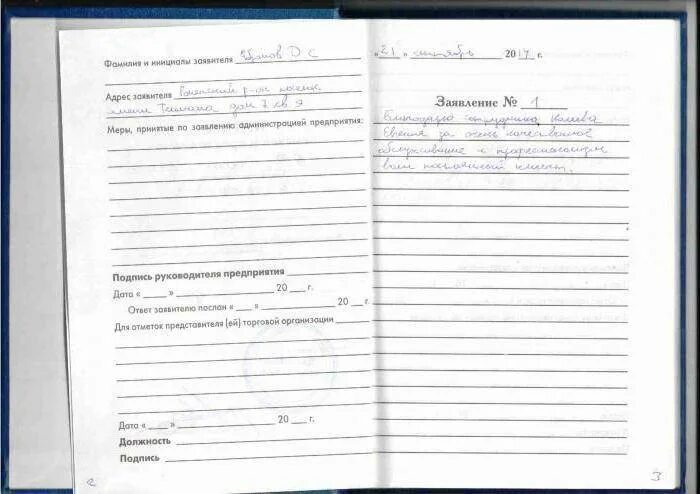 Фамилия и инициалы заявителя Д С
Адрес заявителя р-он поселк
имени Тельмана дом 7 кв 9
Меры, принятые по заявлению администрацией предприятия:
Подпись руководителя предприятия
Дата « » 20 г.
Ответ заявителю послан « » 20 г.
Для отметок представителя (ей) торговой организации
Дата « » 20 г.
Должность
Подпись
2
„ 21 " сентябрь 2017 г.
Заявление № 1
Благодарю сотрудника
Евгения за очень качественное
обслуживание и профессионализм
ваш постоянный клиент.
3